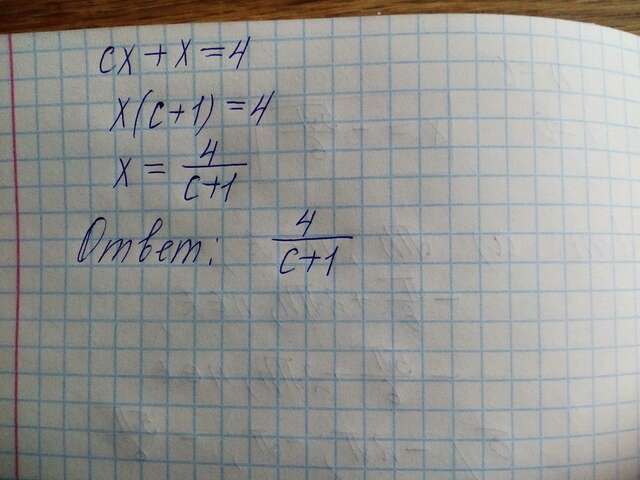 cx + x = 4
x(c+1) = 4
x = 4/(c+1)
Ответ: 4/(c+1)